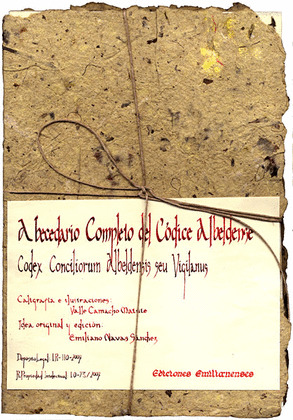 Abecedario Completo del Códice Albeldense
Codex Conciliorum Albeldensis seu Vigilanus
Caligrafía e ilustraciones:
Valle Camacho Matute
Idea original y edición:
Emiliano Navas Sánchez
Deposito Legal LR-110-2009
Ediciones Emilianenses